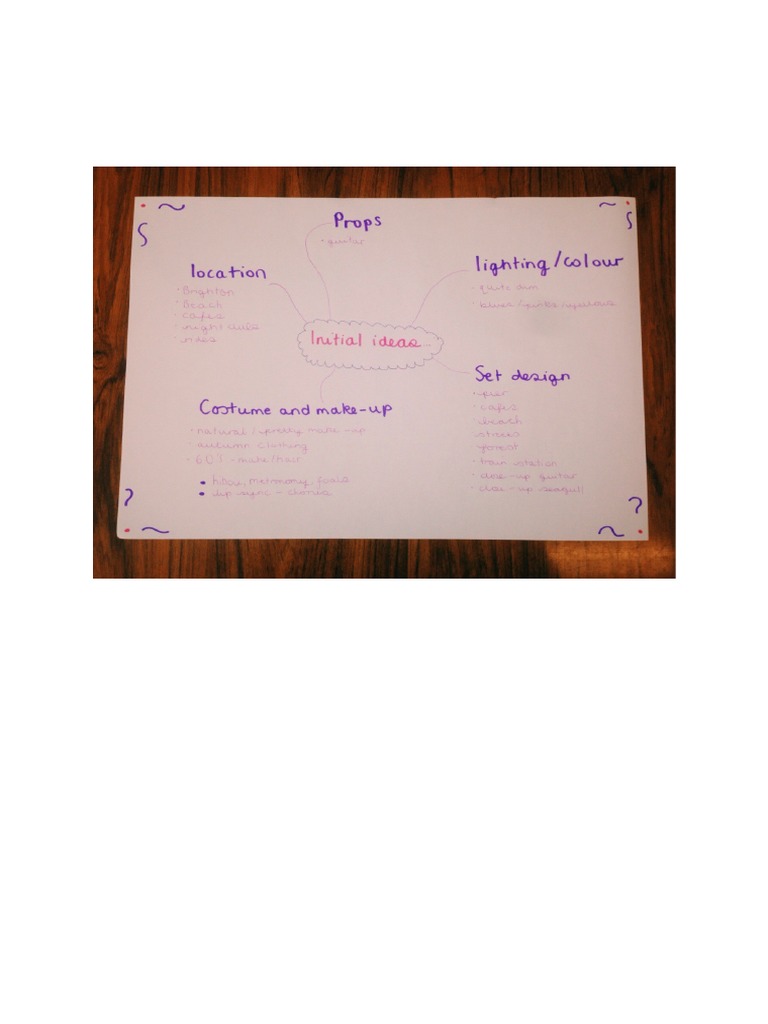 Props
· guitar
lighting/colour
· quite dim
· blues/pinks/
location
· Brighton
· Beach
· cafes
· night clubs
Initial ideas...
Set design
· pier
· cafes
· beach
· streets
· forest
· train station
· close-up guitar
· close-up seagull
Costume and make-up
· natural/pretty make-up
· autumn clothing
· - make/hair
• 
• lip sync - chorus